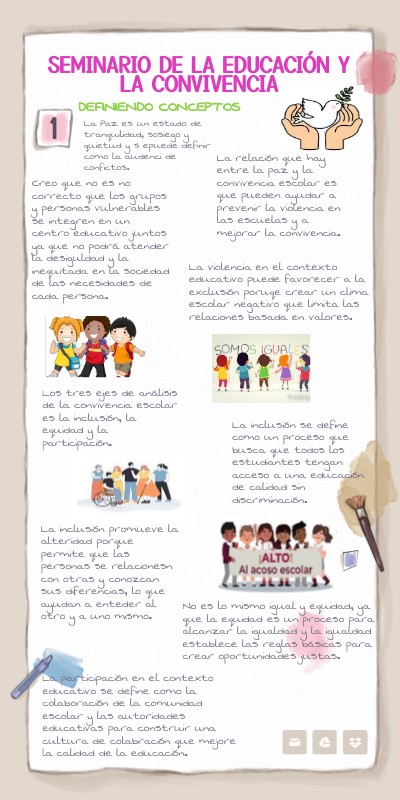 SEMINARIO DE LA EDUCACIÓN Y
LA CONVIVENCIA
DEFINIENDO CONCEPTOS
1
La Paz es un estado de
tranquilidad, sosego y
quietud y s epuede definir
como la audenci de
confictos.
La relación que hay
entre la paz y la
convivencia escolar es
que pueden ayudar a
prevenir la violencia en
las escuelas y a
mejorar la convivencia.
Creo que no es no
correcto que los grupos
y personas vulnerables
se integren en un
centro educativo juntos
ya que no podrá atender
la desiguldad y la
inequitada en la sociedad
de las necesidades de
cada persona.
La violencia en el contexto
educativo puede favorecer a la
exclusión poruqe crear un clima
escolar negativo que limita las
relaciones basada en valores.
SOMOS IGUALES
Los tres ejes de análisis
de la convivencia escolar
es la inclusión, la
equidad y la
participación.
La inclusión se define
como un proceso que
busca que todos los
estudiantes tengan
acceso a una educación
de calidad sin
discriminación.
La inclusión promueve la
alteridad porque
permite que las
personas se relacionesn
con otras y conozcan
sus diferencias, lo que
ayudan a enteder al
otro y a uno mismo.
¡ALTO!
Al acoso escolar
No es lo mismo igual y equidad, ya
que la equidad es un proceso para
alcanzar la igualdad y la igualdad
establece las reglas básicas para
crear oportunidades justas.
La participación en el contexto
educativo se define como la
colaboración de la comunidad
escolar y las autoridades
educativas para construir una
cultura de colabración que mejore
la calidad de la educación.